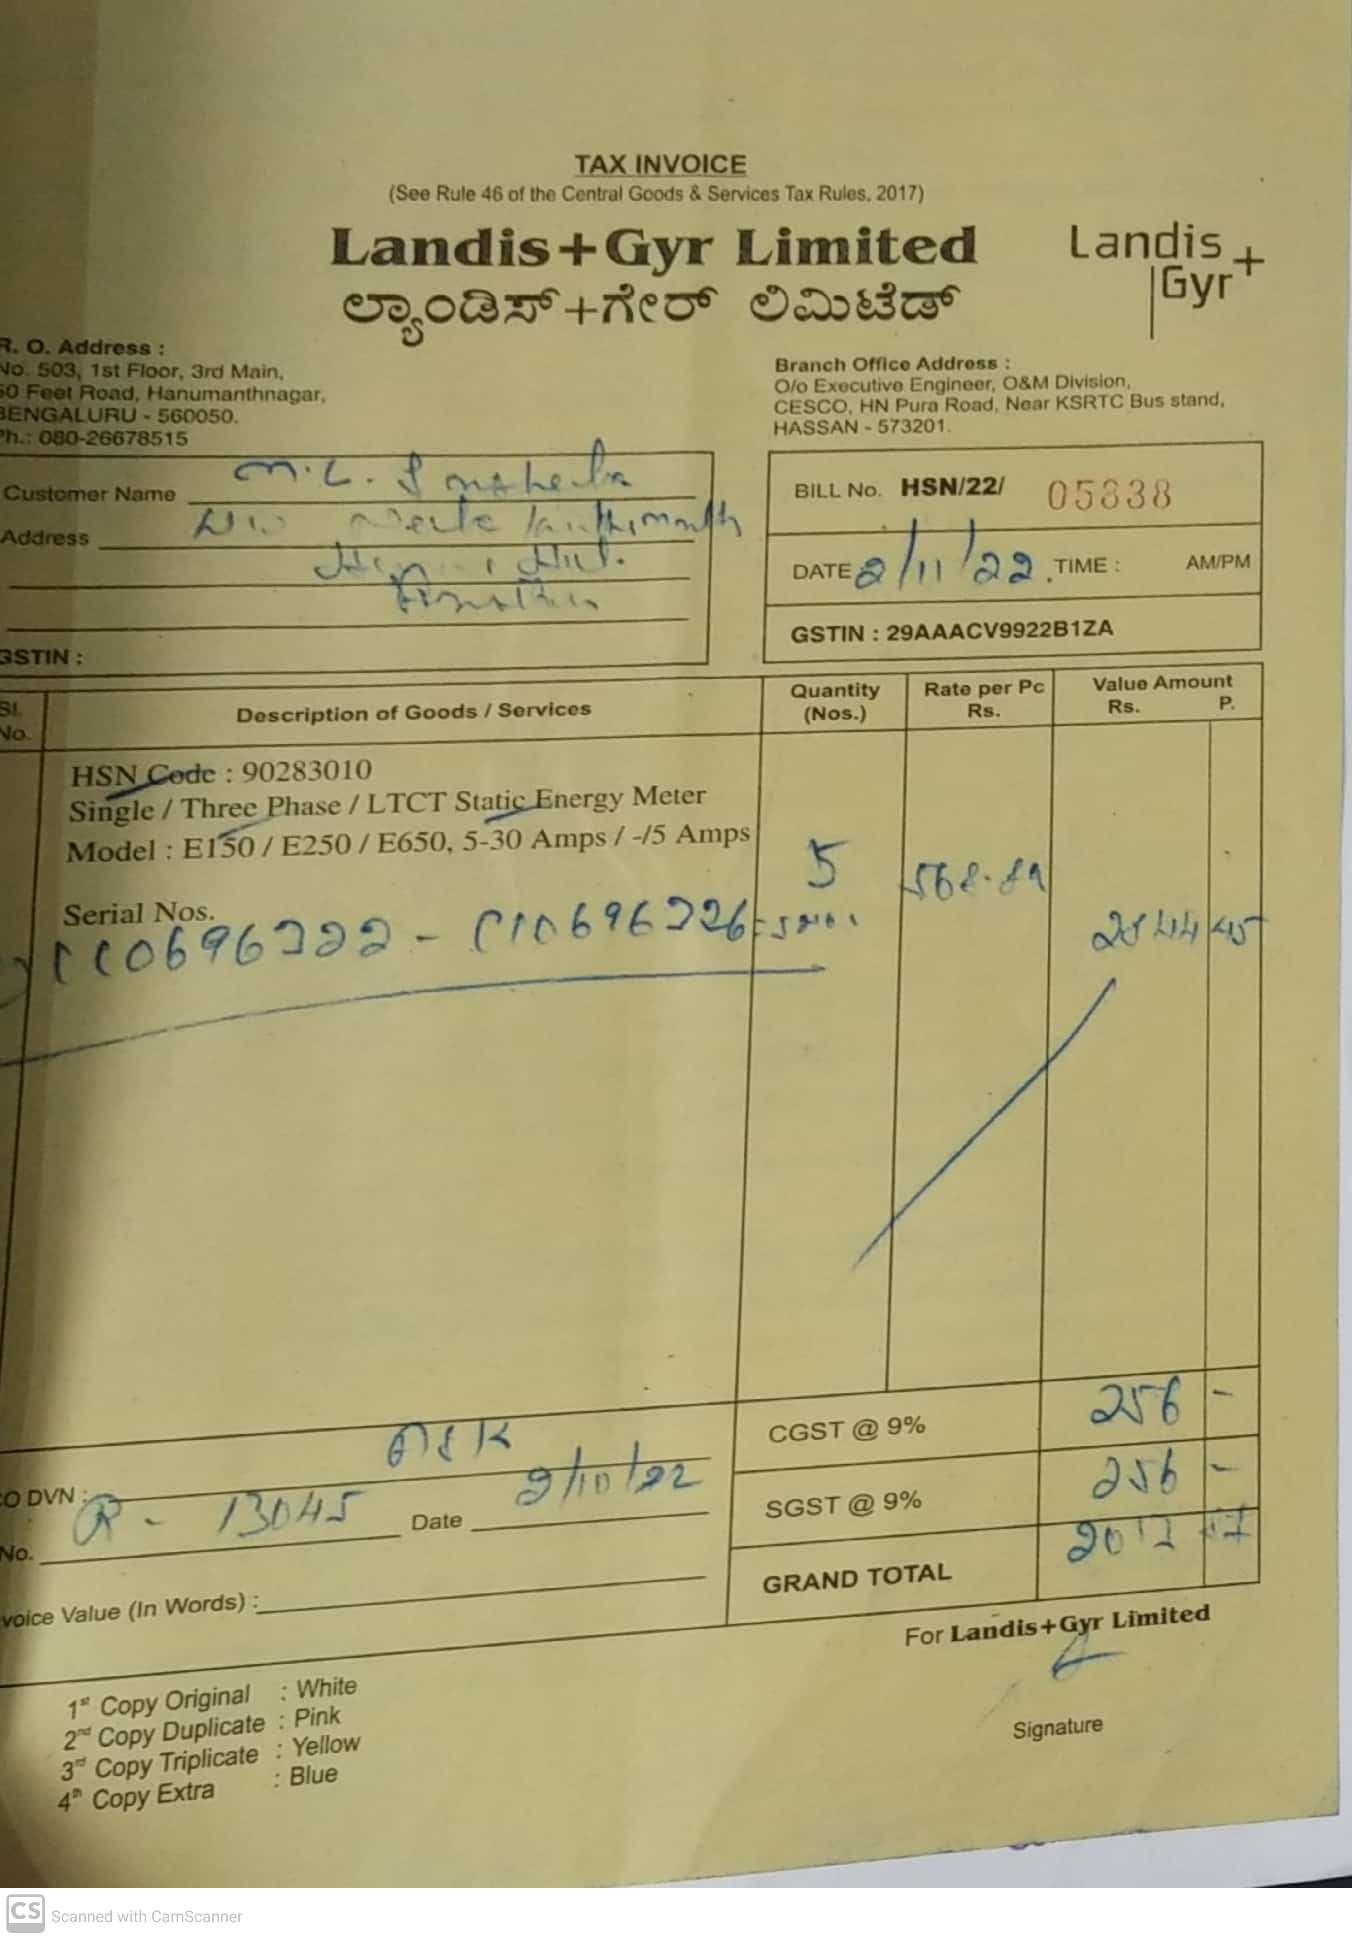 TAX INVOICE
(See Rule 46 of the Central Goods & Services Tax Rules, 2017)
Landis+Gyr Limited
ಲ್ಯಾಂಡಿಸ್+ಗೇರ್ ಲಿಮಿಟೆಡ್
Landis
Gyr+
R. O. Address :
No. 503, 1st Floor, 3rd Main,
50 Feet Road, Hanumanthnagar,
BENGALURU - 560050.
Ph.: 080-26678515
Branch Office Address :
O/o Executive Engineer, O&M Division,
CESCO, HN Pura Road, Near KSRTC Bus stand,
HASSAN - 573201.
Customer Name
Address
GSTIN :
BILL No. HSN/22/ 05838
DATE 2/11/22 TIME : AM/PM
GSTIN : 29AAACV9922B1ZA
Sl. No. Description of Goods / Services Quantity (Nos.) Rate per Pc Rs. Value Amount Rs. P.
HSN Code : 90283010
Single / Three Phase / LTCT Static Energy Meter
Model : E150 / E250 / E650, 5-30 Amps / -/5 Amps
5 568.89
Serial Nos.
2844 45
CGST @ 9% 256 -
SGST @ 9% 256 -
GRAND TOTAL
O DVN :
No. R - 13045 Date 2/10/22
voice Value (In Words) :
For Landis+Gyr Limited
Signature
1st Copy Original : White
2nd Copy Duplicate : Pink
3rd Copy Triplicate : Yellow
4th Copy Extra : Blue
CS Scanned with CamScanner